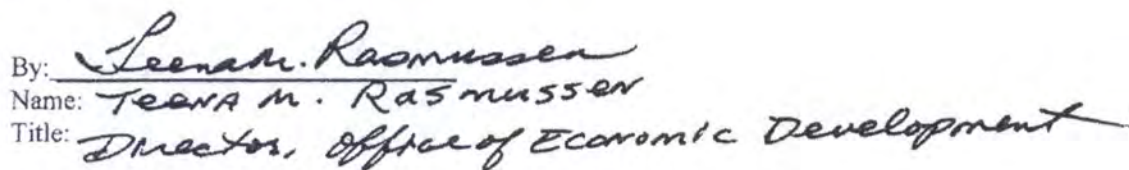 By: Teena M. Rasmussen
Name: Teena M. Rasmussen
Title: Director, Office of Economic Development